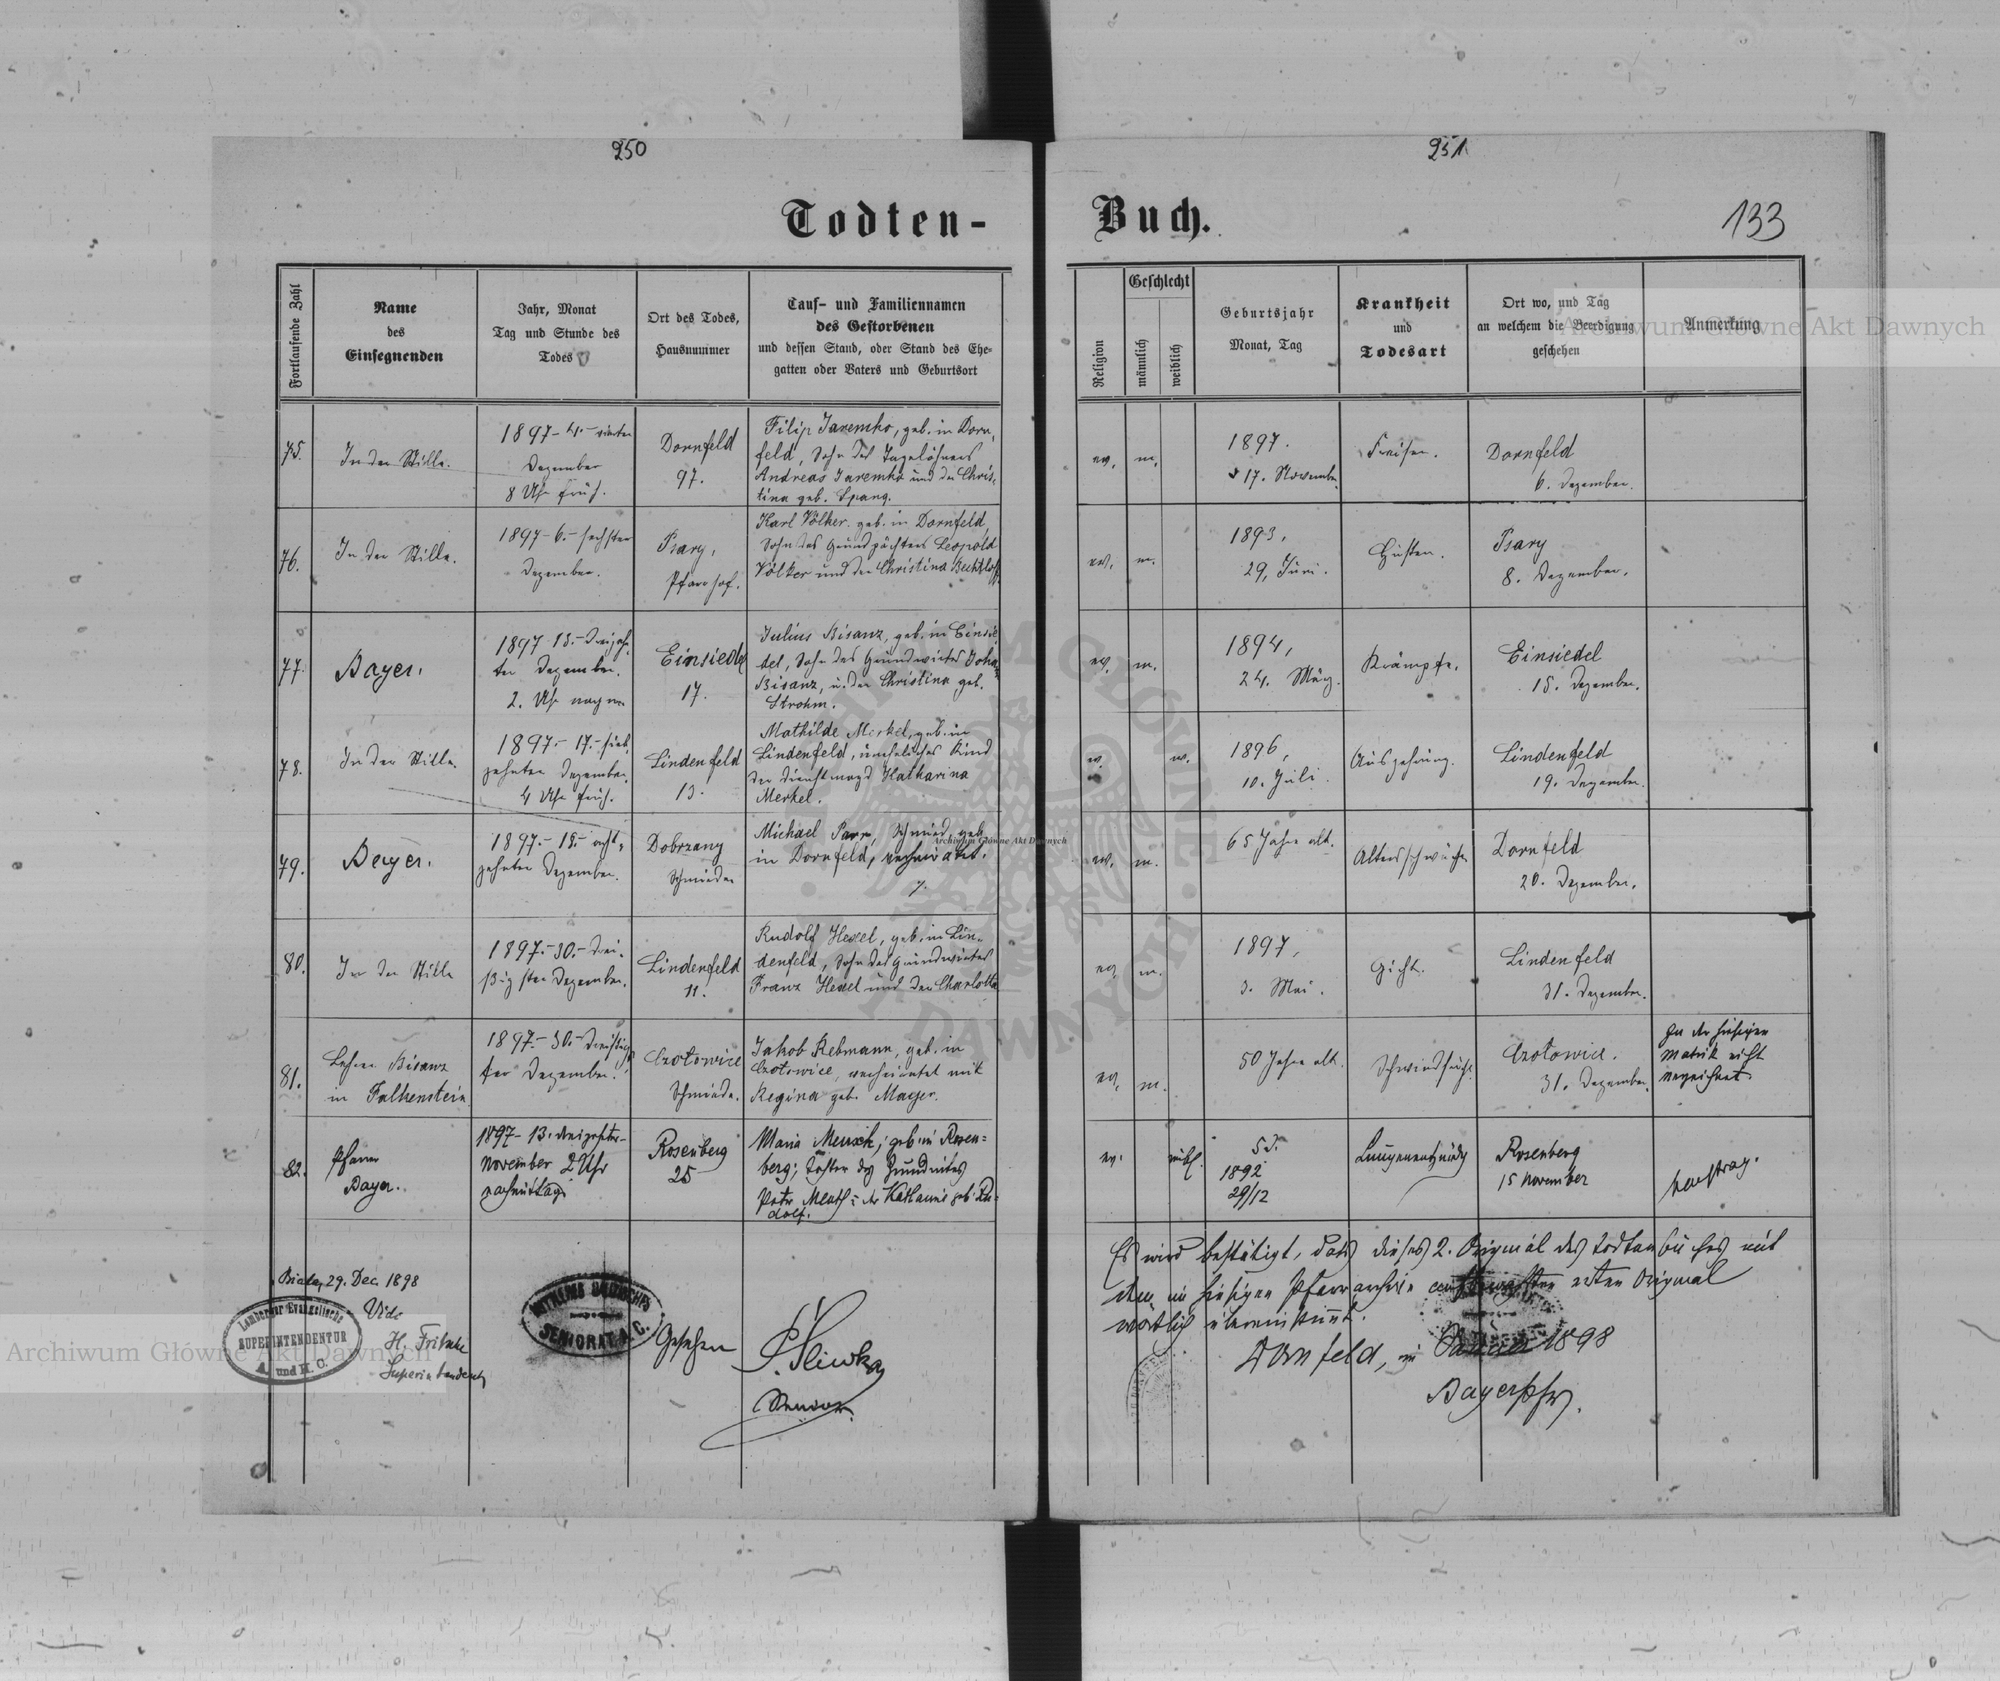 250
251
133
Todten-
Buch.
Fortlaufende Zahl
Name
des
Einsegnenden
Jahr, Monat
Tag und Stunde des
Todes
Ort des Todes,
Hausnummer
Tauf- und Familiennamen
des Gestorbenen
und dessen Stand, oder Stand des Ehe-
gatten oder Vaters und Geburtsort
Religion
Geschlecht
männlich
weiblich
Geburtsjahr
Monat, Tag
Krankheit
und
Todesart
Ort wo, und Tag
an welchem die Beerdigung
geschehen
Anmerkung
75.
In der Stille.
1897 - 4. - vierten
Dezember
8 Uhr früh.
Dornfeld
97.
Filip Jaremko, geb. in Dorn-
feld, Sohn des Tagelöhners
Andreas Jaremko und der Chris-
tina geb. Spang.
ev.
m.
1897.
17. November
Freisen.
Dornfeld
6. Dezember.
76.
In der Stille.
1897 - 6. - sechsten
Dezember.
Psary,
Pfarrhof.
Karl Völker geb. in Dornfeld,
Sohn des Grundpächters Leopold
Völker und der Christina Bechtloff
ev.
m.
1893,
29. Juni.
Husten.
Psary
8. Dezember.
77.
Bayer.
1897 13. - dreizehn-
ten Dezember.
2. Uhr nachm
Einsiedel
17.
Julius Bisanz, geb. in Einsie-
del, Sohn des Grundwirtes Johan
Bisanz, u. der Christina geb.
Strohm.
ev.
m.
1894,
24. März.
Krämpfe.
Einsiedel
15. Dezember.
78.
In der Stille.
1897. - 17. - sieb-
zehnten Dezember
4 Uhr früh.
Lindenfeld
13.
Mathilde Merkel, geb. in
Lindenfeld, uneheliches Kind
der Dienstmagd Katharina
Merkel.
w.
1896,
10. Juli.
Auszehrung.
Lindenfeld
19. Dezember.
79.
Beyer.
1897. - 18. - acht-
zehnten Dezember.
Dobrzany
Schmiede
Michael Parr, Schmied, geb.
in Dornfeld, verheiratet.
ev.
m.
65 Jahre alt.
Altersschwäche
Dornfeld
20. Dezember.
80.
In der Stille
1897. - 30. - drei-
ßigsten Dezember.
Lindenfeld
11.
Rudolf Hexel, geb. in Lin-
denfeld, Sohn des Grundwirtes
Franz Hexel und der Charlotte
ev.
m.
1897,
3. Mai.
Gicht.
Lindenfeld
31. Dezember.
81.
Lehrer Bisanz
in Falkenstein.
1897. - 30. - dreißigs-
ter Dezember.
Czotowice
Schmiede.
Jakob Rebmann, geb. in
Czotowice, verheiratet mit
Regina geb. Mayer.
ev.
m.
50 Jahre alt.
Schwindsucht.
Czotowice.
31. Dezember.
In der hiesigen
Matrik nicht
verzeichnet.
82.
Pfarrer
Bayer.
1897 - 13. dreizehnter
November 2 Uhr
nachmittag
Rosenberg
25
Maria Mensch, geb. in Rosen-
berg; Tochter des Grundwirtes
Peter Mensch u. der Katharina geb. Ru-
dolf.
ev.
weibl.
5 J.
1892
29/12
Lungenentzündg
Rosenberg
15 November
Nachtrag.
Es wird bestätigt, dass dieses 2. Original des Todtenbuches mit
dem im hiesigen Pfarrarchive aufbewahrten ersten Original
wörtlich übereinstimmt.
Dornfeld, im Januar 1898
Bayer Pfr.
Biala, 29. Dec. 1898
Vidi
H. Fritsche
Superintendent
Lemberger Evangelische
SUPERINTENDENTUR
A. und H. C.
SENIORAT A. C.
Gesehen
Sliwka
Senior.
Archiwum Główne Akt Dawnych
Archiwum Główne Akt Dawnych
Archiwum Główne Akt Dawnych